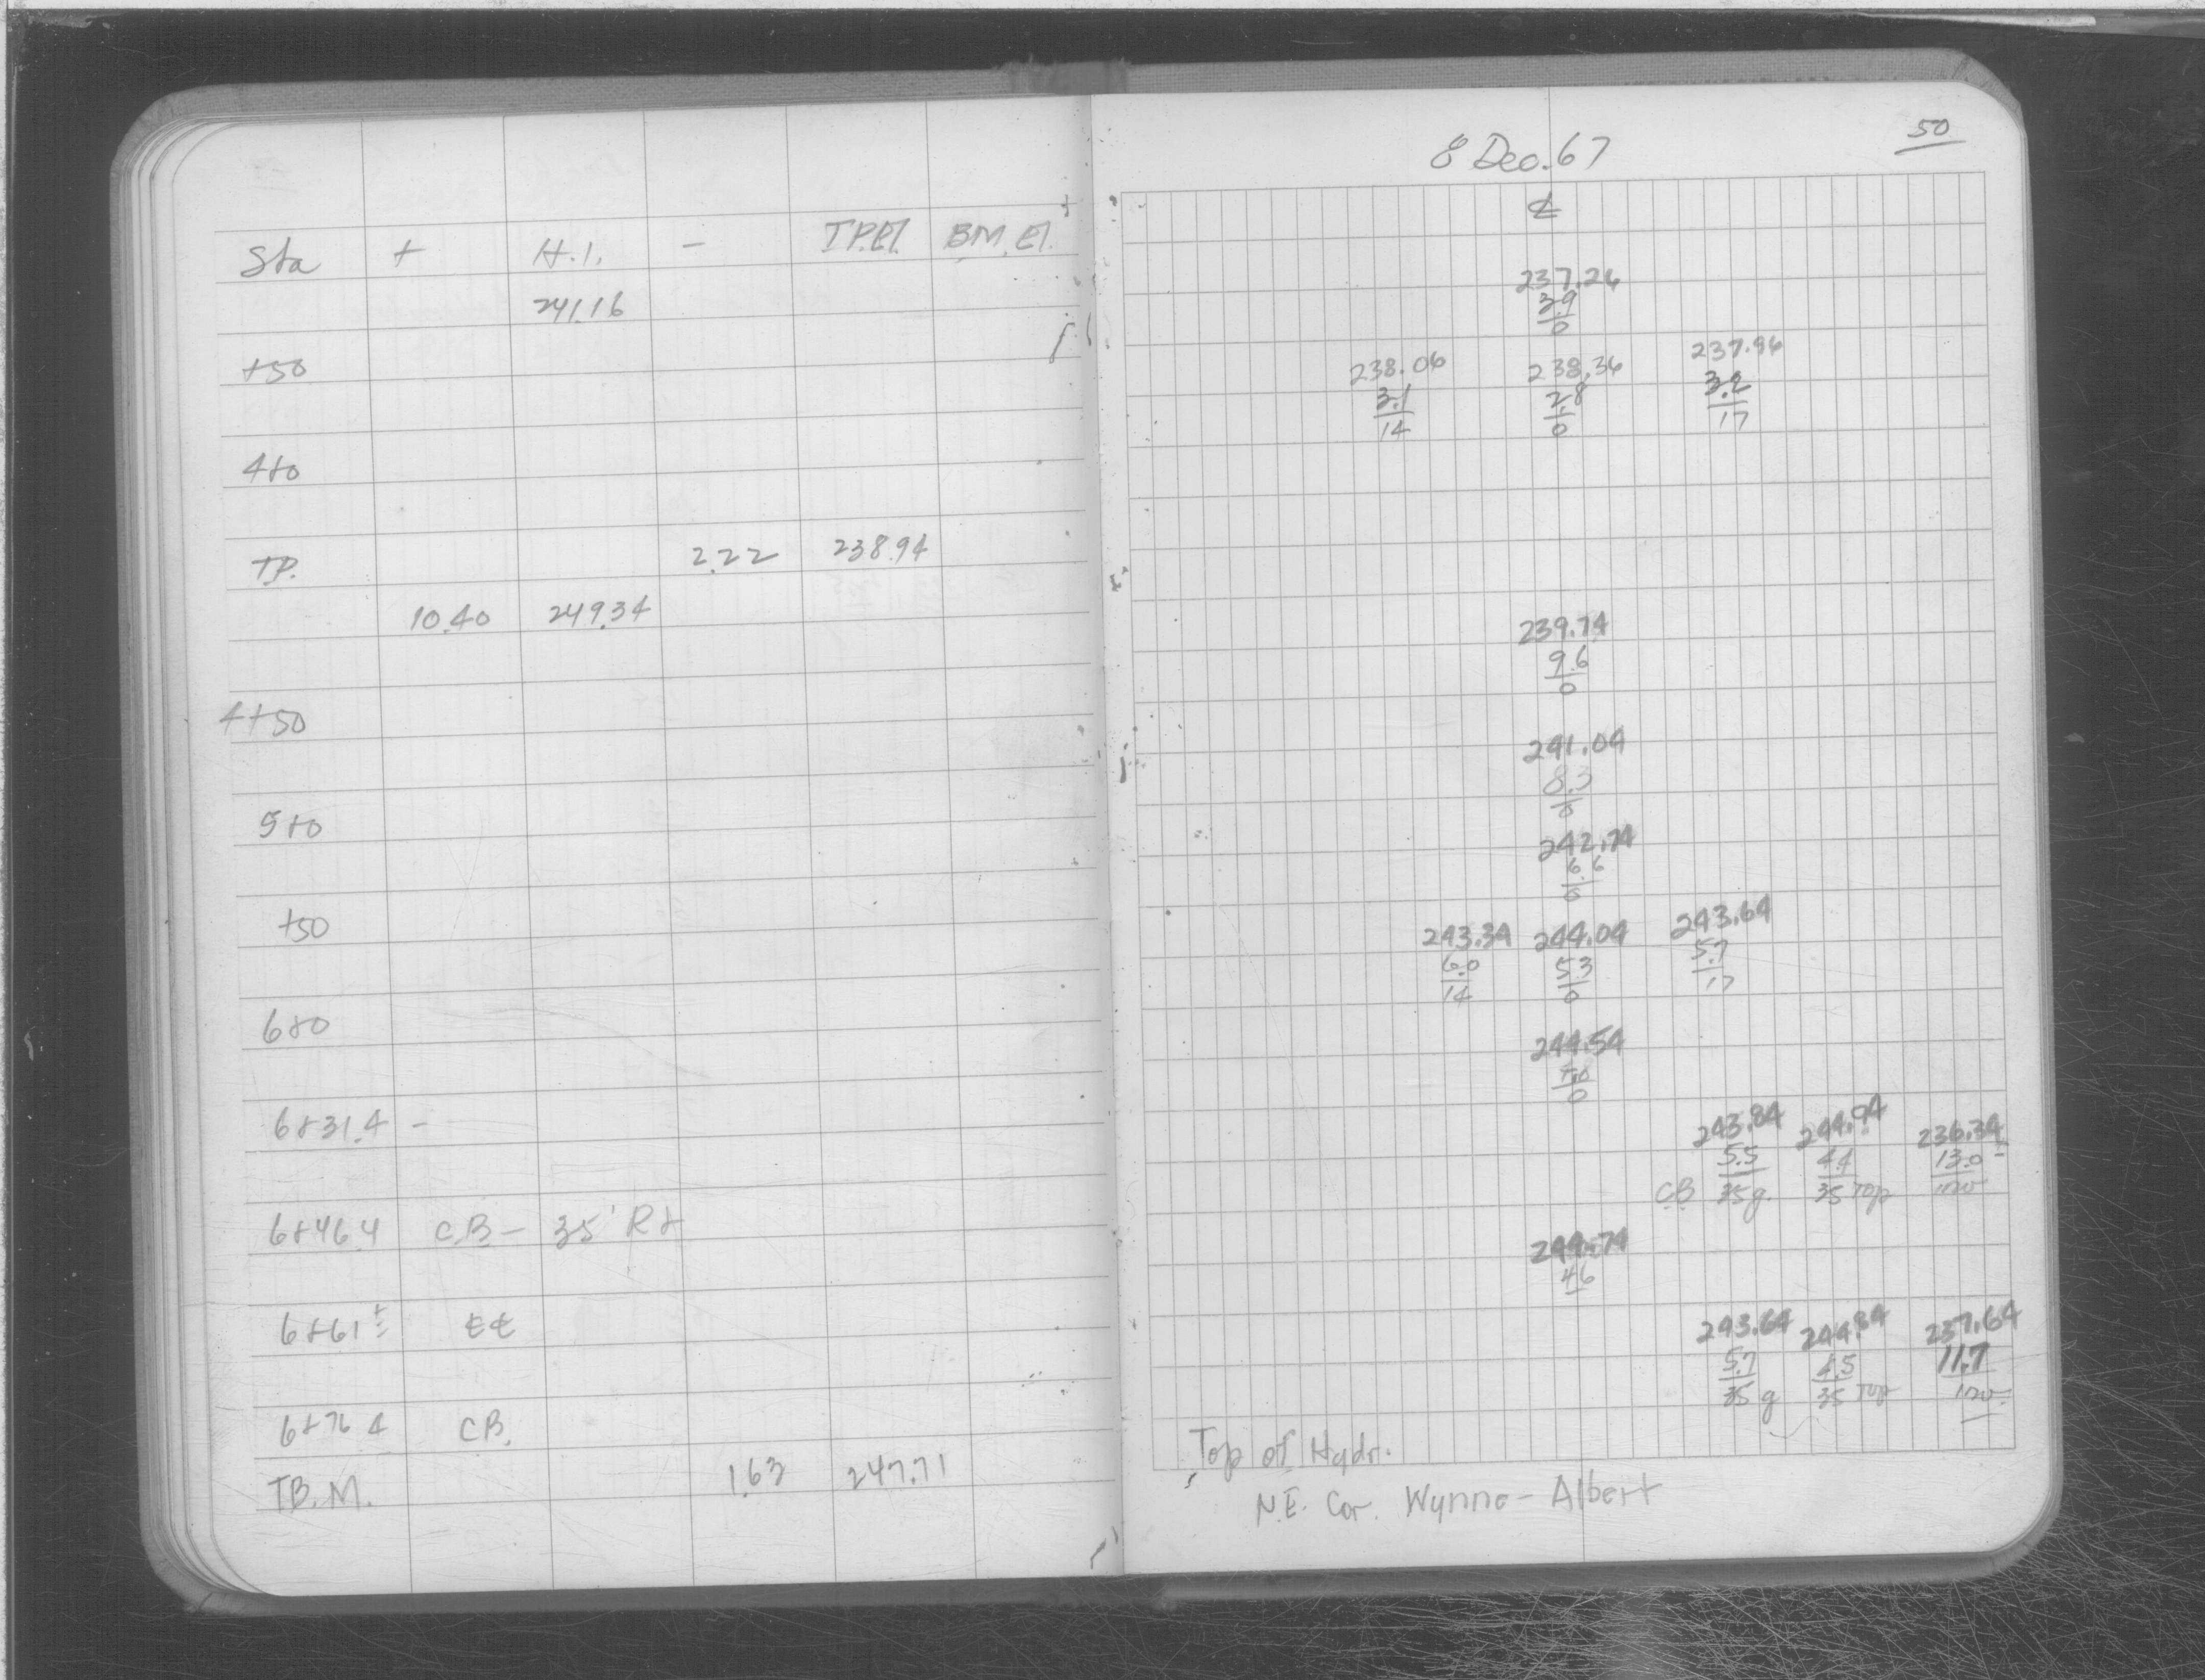 Sta + H.I. - T.P.El. B.M. El.
241.16
+50
4+0
T.P. 2.22 238.94
10.40 249.34
4+50
5+0
+50
6+0
6+31.4 -
6+46.4 C.B - 35' Rt
6+61 ± ℄℄
6+76 4 CB.
T.B.M. 1.63 247.71
8 Dec. 67
50
℄
237.26
3.9
0
238.06 238.36 237.96
3.1 2.8 3.2
14 0 17
239.74
9.6
0
241.04
8.3
0
242.74
6.6
0
243.34 244.04 243.64
6.0 5.3 5.7
14 0 17
244.54
0
243.84 244.94 236.34
5.5 4.4 13.0
CB 35 g. 35 Top inv
244.74
4.6
243.64 244.84 237.64
5.7 4.5 11.7
35 g 35 Top inv.
Top of Hydr.
N.E. Cor. Wynne - Albert